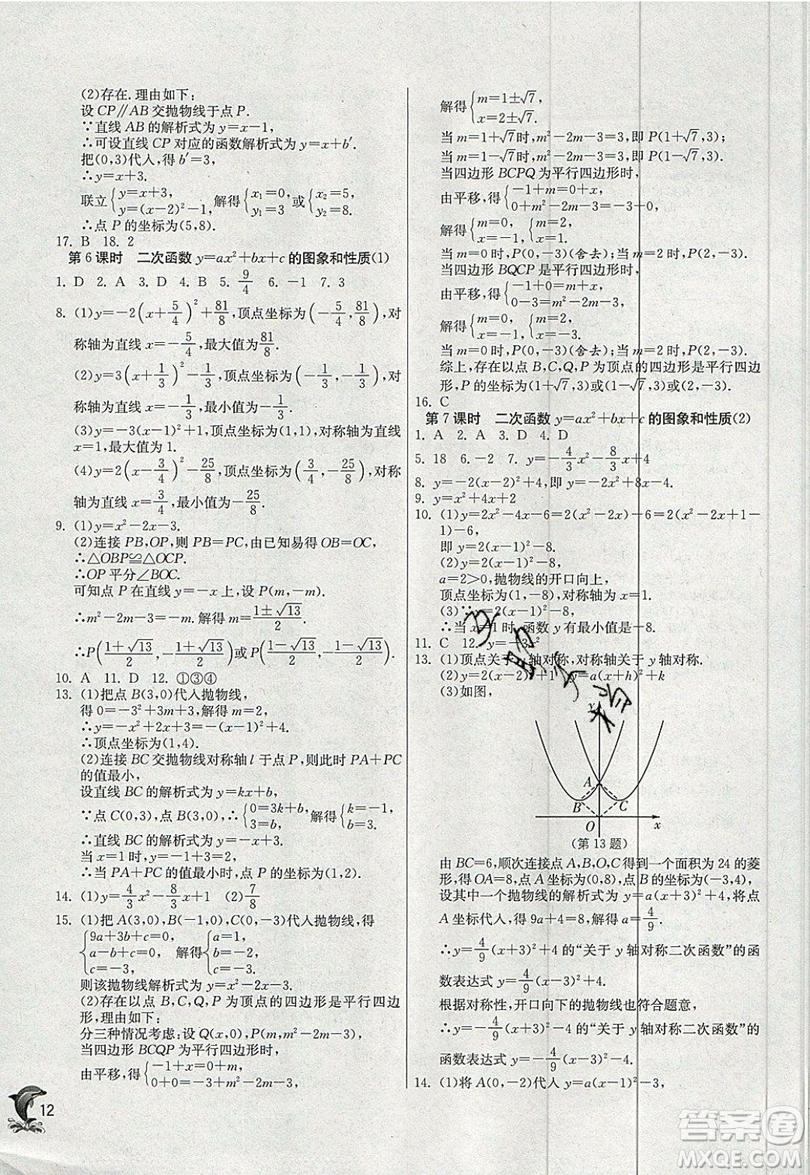 (2)存在.理由如下:
设 CP∥AB 交抛物线于点 P.
∵直线 AB 的解析式为 y=x−1,
∴可设直线 CP 对应的函数解析式为 y=x+b′.
把(0,3)代入,得 b′=3,
∴y=x+3.
联立{y=x+3, y=(x−2)²−1, 解得{x₁=0, y₁=3, 或{x₂=5, y₂=8.
∴点 P 的坐标为(5,8).
17. B 18. 2
第 6 课时 二次函数 y=ax²+bx+c 的图象和性质(1)
1. D 2. A 3. D 4. B 5. 9/4 6. −1 7. 3
8. (1)y=−2(x+5/4)²+81/8,顶点坐标为(−5/4,81/8),对
称轴为直线 x=−5/4,最大值为81/8.
(2)y=3(x+1/3)²−1/3,顶点坐标为(−1/3,−1/3),对
称轴为直线 x=−1/3,最小值为−1/3.
(3)y=−3(x−1)²+1,顶点坐标为(1,1),对称轴为直线
x=1,最大值为 1.
(4)y=2(x−3/4)²−25/8,顶点坐标为(3/4,−25/8),对称
轴为直线 x=3/4,最小值为−25/8.
9. (1)y=x²−2x−3.
(2)连接 PB,OP,则 PB=PC,由于 OB=OC,
∴△OBP≌△OCP.
∴OP 平分∠BOC.
可知点 P 在直线 y=−x 上,设点 P(m,−m).
∴m²−2m−3=−m.解得 m=(1±√13)/2.
∴P((1+√13)/2,−(1+√13)/2)或 P((1−√13)/2,−(1−√13)/2).
10. A 11. D 12. ①③④
13. (1)把点 B(3,0)代入抛物线,
得 0=−3²+3m+3,解得 m=2,
∴y=−x²+2x+3=−(x−1)²+4.
∴顶点坐标为(1,4).
(2)连接 BC 交抛物线对称轴 l 于点 P,则此时 PA+PC
的值最小,
设直线 BC 的解析式为 y=kx+b,
∵点 C(0,3),点 B(3,0),∴{0=3k+b, 3=b, 解得{k=−1, b=3.
∴直线 BC 的解析式为 y=−x+3.
当 x=1 时,y=−1+3=2.
∴当 PA+PC 的值最小时,点 P 的坐标为(1,2).
14. (1)y=4/3x²−8/3x (2)7/8
15. (1)把 A(3,0),B(−1,0),C(0,−3)代入抛物线,得
{9a+3b+c=0, a−b+c=0, c=−3, 解得{a=1, b=−2, c=−3.
则该抛物线解析式为 y=x²−2x−3.
(2)存在以点 B,C,Q,P 为顶点的四边形是平行四边
形,理由如下:
分三种情况考虑:设 Q(x,0),P(m,m²−2m−3),
当四边形 BCQP 为平行四边形时,
由平移,得{−1+x=0+m, 0+0=−3+m²−2m−3,
12
解得{m=1±√7, x=2±√7.
当 m=1+√7时,m²−2m−3=3,即 P(1+√7,3);
当 m=1−√7时,m²−2m−3=3,即 P(1−√7,3).
当四边形 BCPQ 为平行四边形时,
由平移,得{−1+m=0+x, 0+m²−2m−3=−3+0,
解得{m=0, x=−1 或{m=2, x=1.
当 m=0 时,P(0,−3)(舍去);当 m=2 时,P(2,−3).
当四边形 BQCP 是平行四边形时,
由平移,得{−1+0=m+x, 0−3=m²−2m−3,
解得{m=0, x=−1 或{m=2, x=−3.
当 m=0 时,P(0,−3)(舍去);当 m=2 时,P(2,−3).
综上,存在以点 B,C,Q,P 为顶点的四边形是平行四边
形,P 的坐标为(1+√7,3)或(1−√7,3)或(2,−3).
16. C
第 7 课时 二次函数 y=ax²+bx+c 的图象和性质(2)
1. A 2. A 3. D 4. D
5. 18 6. −2 7. y=−4/3x²−8/3x+4
8. y=−2(x−2)²+2(x−2),即 y=−2(x−2)²
9. y=x²+4x+2
10. (1)y=2x²−4x−6=2(x²−2x)−6=2(x²−2x+1−
1)−6,
即 y=2(x−1)²−8.
(2)y=2(x−1)²−8,
a=2>0,抛物线的开口向上,
顶点坐标为(1,−8),对称轴为 x=1.
(3)∵y=2(x−1)²−8.
∴当 x=1 时,函数 y 有最小值是−8.
11. C
13. (1)顶点关于 y 轴对称,对称轴关于 y 轴对称.
(2)y=2(x−2)²+1 y=a(x+h)²+k
(3)如图,
y
A
B
C
O
x
(第 13 题)
由 BC=6,顺次连接点 A,B,O,C 得到一个面积为 24 的菱
形,得 OA=8,点 A 的坐标为(0,8),点 B 的坐标为(−3,4),
设其中一个抛物线的解析式为 y=a(x+3)²+4,将点
A 坐标代入,得 9a+4=8,解得 a=4/9.
∴y=4/9(x+3)²+4 的“关于 y 轴对称二次函数”的函
数表达式 y=4/9(x−3)²+4.
根据对称性,开口向下的抛物线也符合题意,
∴y=−4/9(x+3)²−4 的“关于 y 轴对称二次函数”的
函数表达式 y=−4/9(x−3)²−4.
14. (1)将 A(0,−2)代入 y=x²−1+m−1,
答案圈
MXQE.COM